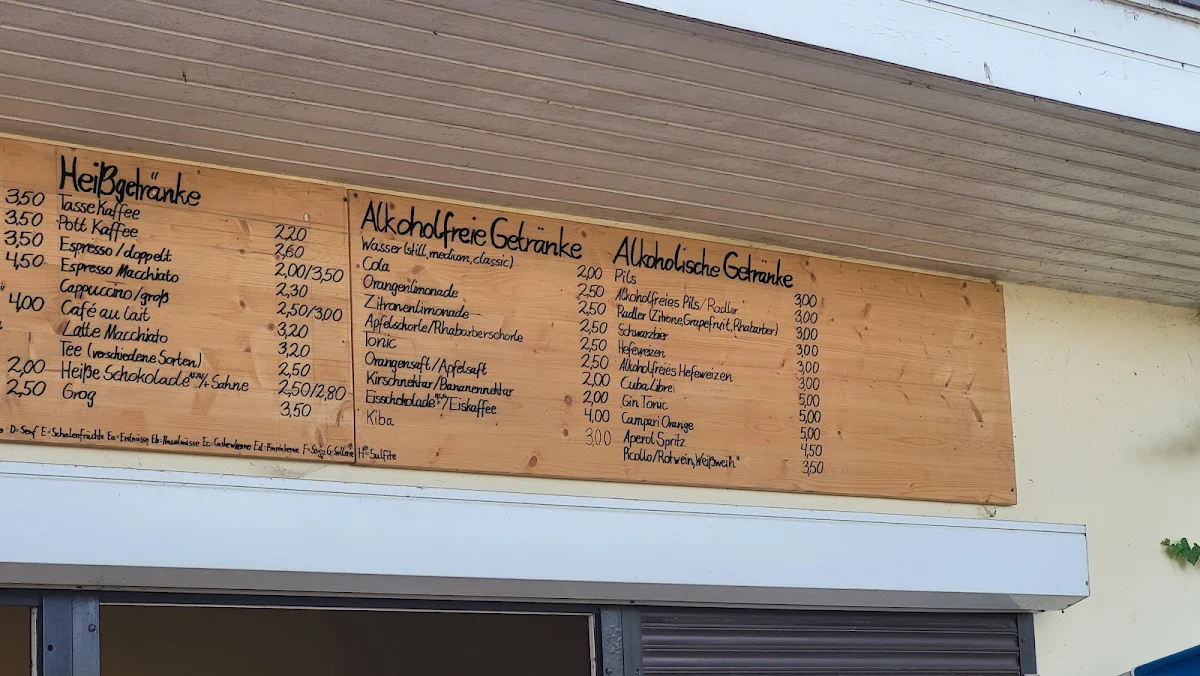 3,50
3,50
3,50
4,50
4,00
2,00
2,50
Heißgetränke
Tasse Kaffee 2,20
Pott Kaffee 2,60
Espresso/doppelt 2,00/3,50
Espresso Macchiato 2,30
Cappuccino/groß 2,50/3,00
Café au Lait 3,20
Latte Macchiato 3,20
Tee (verschiedene Sorten) 2,50
Heiße Schokolade /+ Sahne 2,50/2,80
Grog 3,50
Alkoholfreie Getränke
Wasser (still, medium, classic) 2,00
Cola 2,50
Orangenlimonade 2,50
Zitronenlimonade 2,50
Apfelschorle/Rhabarberschorle 2,50
Tonic 2,50
Orangensaft/Apfelsaft 2,00
Kirschnektar/Bananennektar 2,00
Eisschokolade/Eiskaffee 4,00
Kiba 3,00
Alkoholische Getränke
Pils 3,00
Alkoholfreies Pils/Radler 3,00
Radler (Zitrone, Grapefruit, Rhabarber) 3,00
Schwarzbier 3,00
Hefeweizen 3,00
Alkoholfreies Hefeweizen 3,00
Cuba Libre 5,00
Gin Tonic 5,00
Campari Orange 5,00
Aperol Spritz 4,50
Picollo/Rotwein, Weißwein 3,50
D=Senf E=Schalenfrüchte Ea=Erdnüsse Eb=Haselnüsse Ec=Cashewkerne Ed=Pinienkerne F=Soja G=Sellerie H=Sulfite